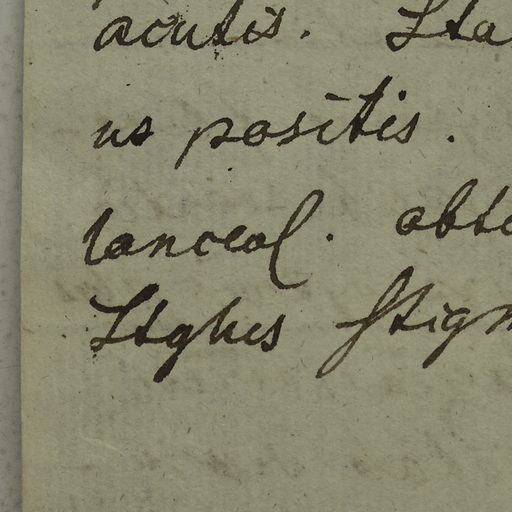 acutis. Sta
us positis.
lanceol. obt
Stylus Stigm